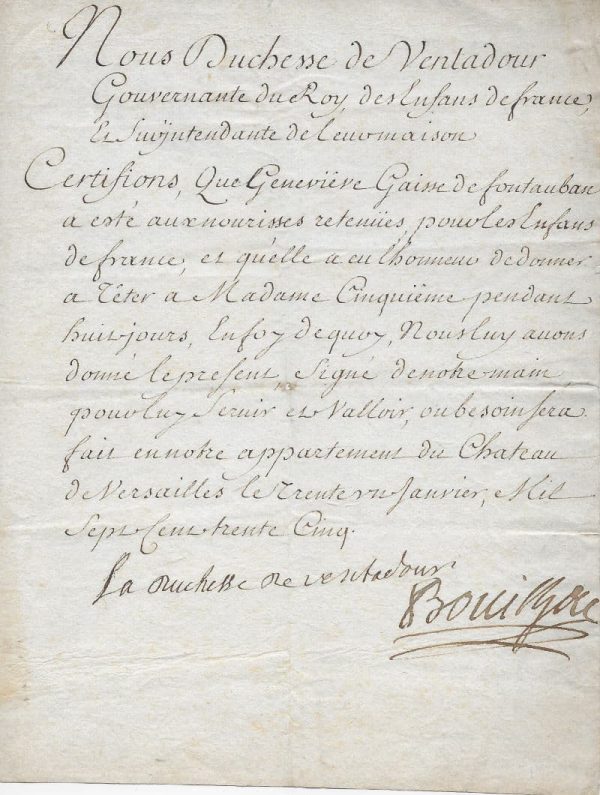 Nous Duchesse de Ventadour
Gouvernante du Roy, des Enfans de france,
Et Surjntendante de leur maison
Certifions, Que Geneviève Gaisse de fontauban
a esté aux nourisses retenües, pour les Enfans
de france, et qu'elle a eu l'honneur de donner
a Têter à Madame Cinquiéme pendant
huit jours, En foy de quoy, Nous luy avons
donné le present, signé de notre main,
pour luy Servir et Valloir, ou besoin sera
fait en notre appartement du Chateau
de Versailles le Trente un Janvier, Mil
Sept Cent trente Cinq.
La duchesse de ventadour